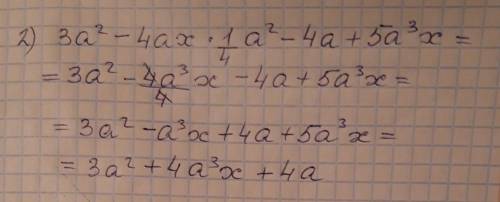 2) 3a² - 4ax · 1/4 a² - 4a + 5a³x =
= 3a² - 4a³/4 x - 4a + 5a³x =
= 3a² - a³x + 4a + 5a³x =
= 3a² + 4a³x + 4a